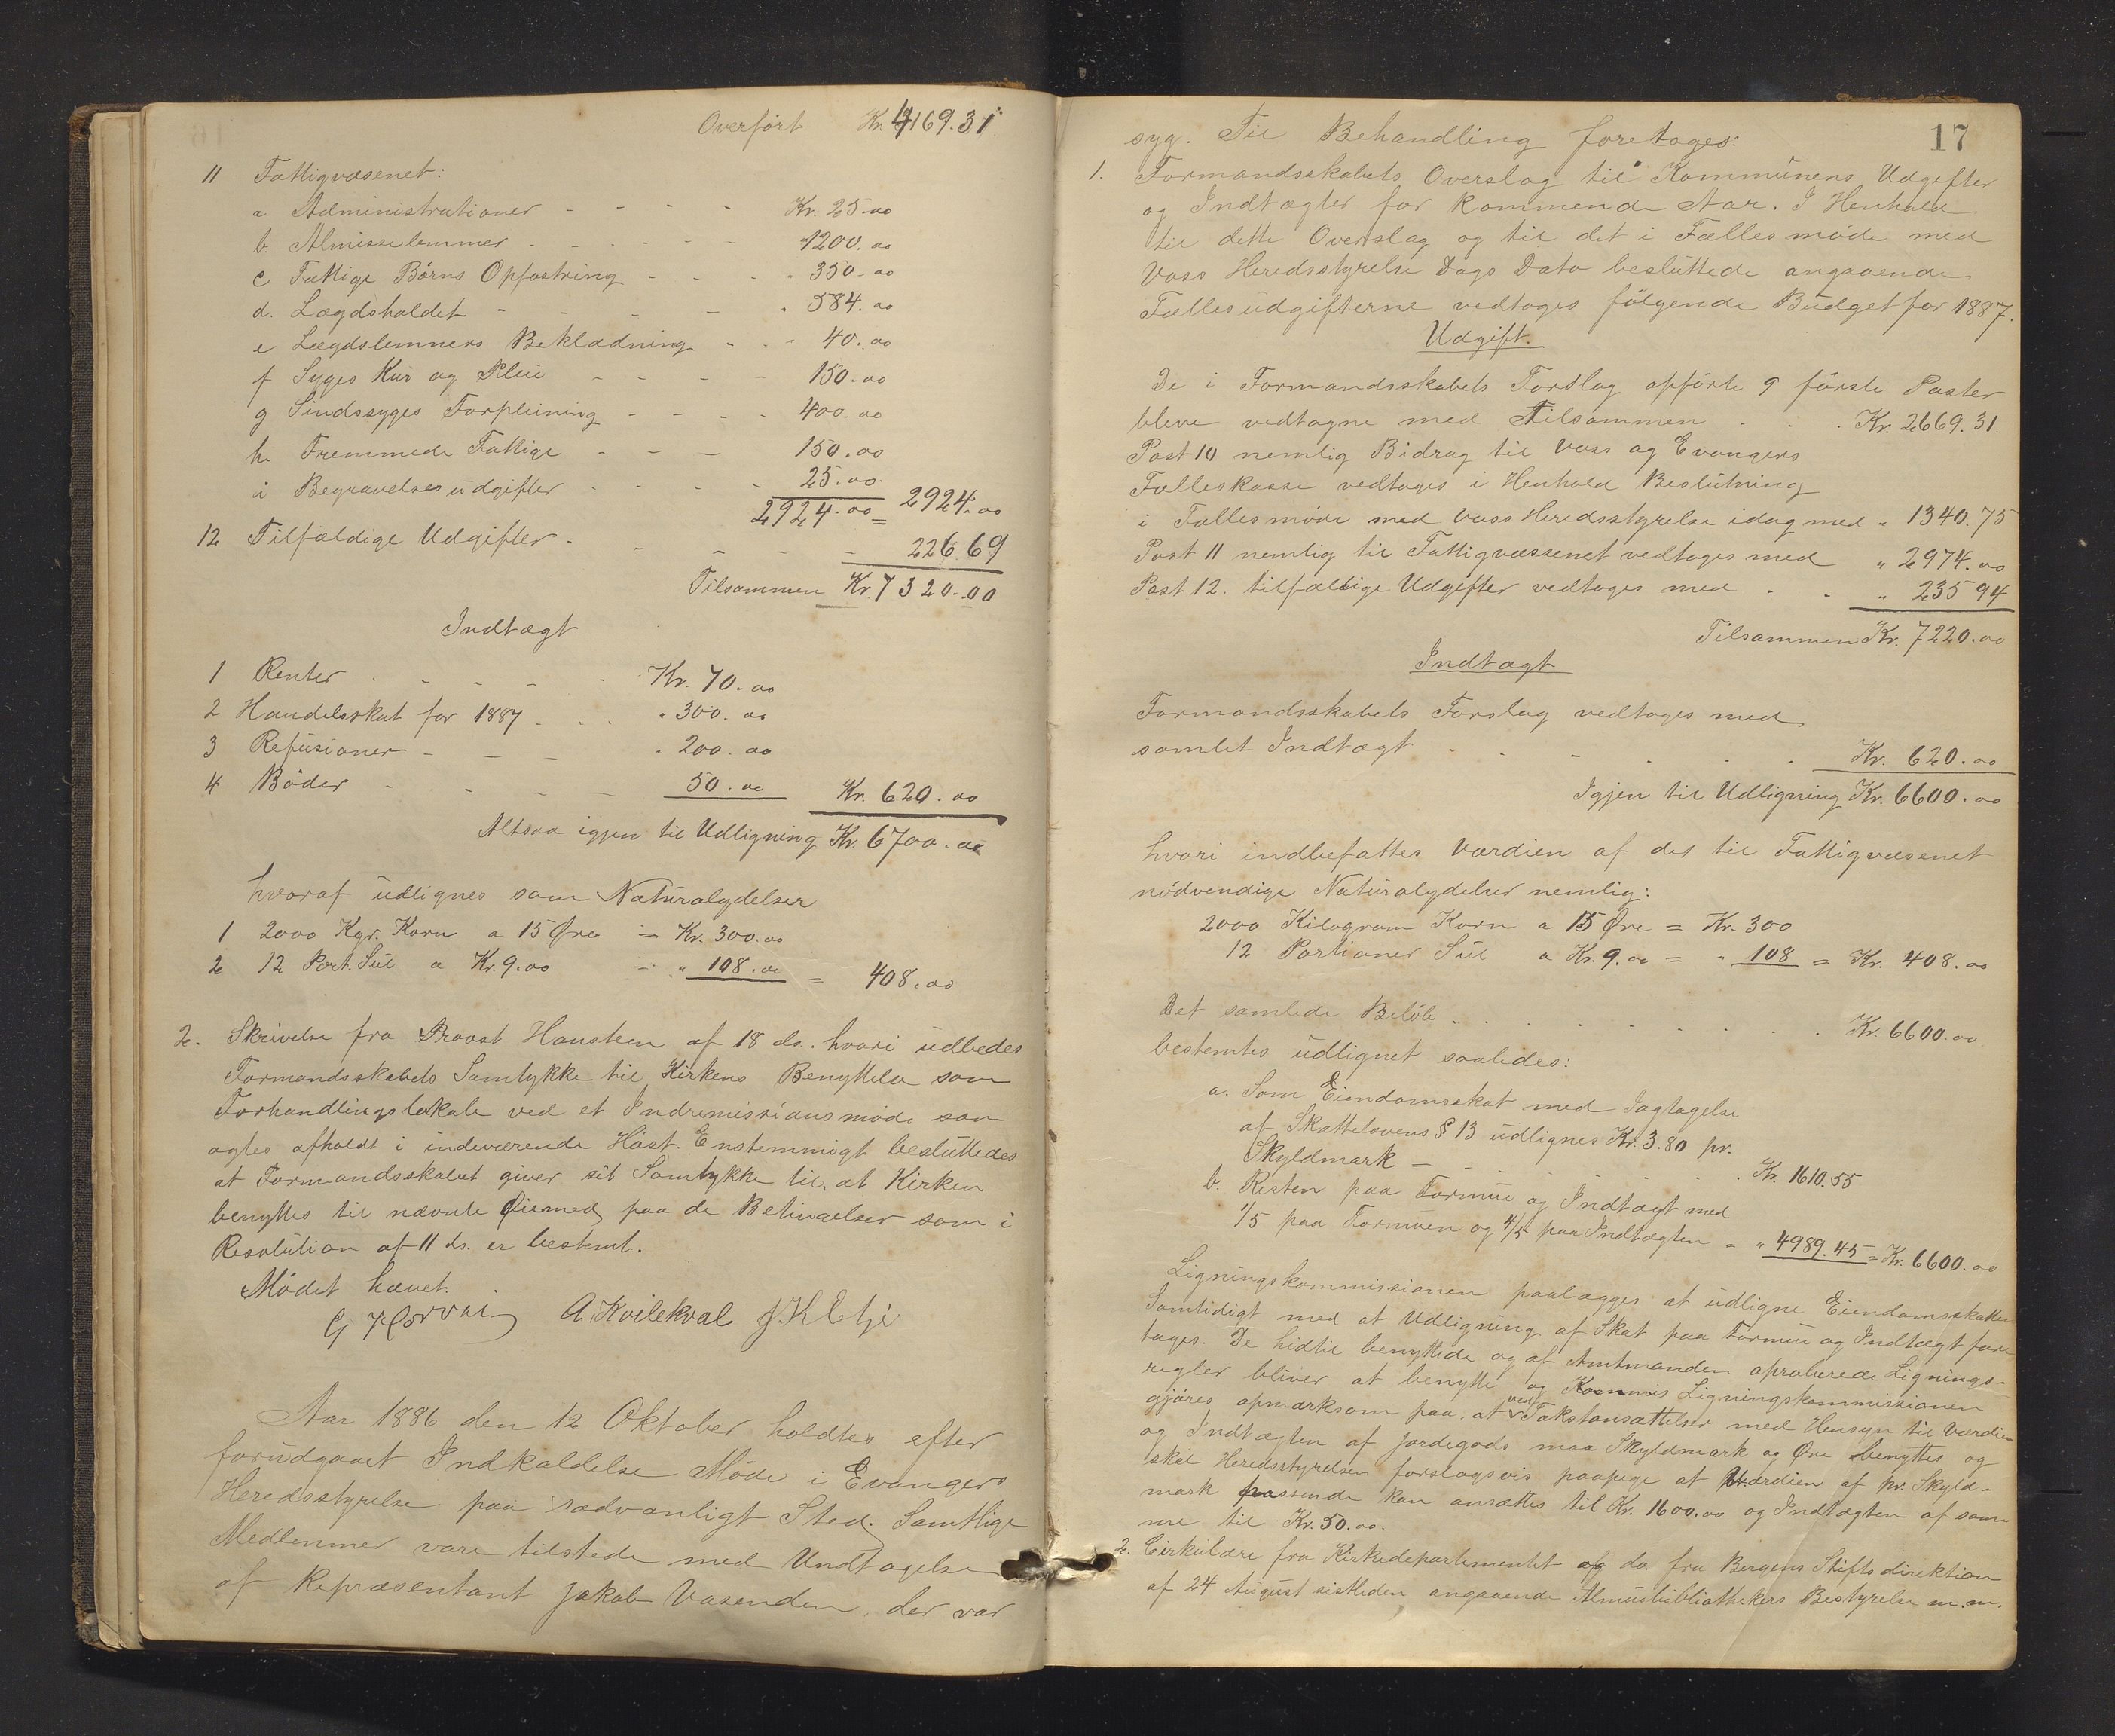 Overført Kr. 4169.31
11 Fattigvæsenet:
a Administrationer - - - - Kr. 25.00
b. Almisselemmer - - - - - 1200.00
c Fattige Børns Opfostring - - - " 350.00
d. Lægdsholdet - - - - " 584.00
e Lægdslemmers Beklædning - - - 40.00
f Syges Kur og Pleie - - - - 150.00
g Sindssyges Forpleining - - - - 400.00
h. Fremmede Fattige - - - 150.00
i Begravelsesudgifter - - - - 25.00
2924.00 = 2924.00
12 Tilfældige Udgifter - - - - - 226.69
Tilsammen Kr. 7320.00
Indtægt
1 Renter - - - - Kr. 70.00
2 Handelsskat for 1887 - - " 300.00
3 Refusioner - - - " 200.00
4 Bøder - - - - 50.00 Kr. 620.00
Altsaa igjen til Udligning Kr. 6700.00
hvoraf udlignes som Naturalydelser
1 2000 Kgr. Korn a 15 Øre = Kr. 300.00
2 12 Port. Sul a Kr. 9.00 = " 108.00 = 408.00
2. Skrivelse fra Provst Hansteen af 18 ds. hvori udbedes
Formandsskabets Samtykke til Kirkens Benyttelse som
Forhandlingslokale ved et Indremissionsmøde som
agtes afholdt i indeværende Høst. Enstemmigt besluttedes
at Formandsskabet giver sit Samtykke til, at Kirken
benyttes til nævnte Øiemed paa de Betingelser som i
Resolution af 11 ds. er bestemt.
Mødet hævet.
G Horvei A. Kvilekval J. K Etje
Aar 1886 den 12 Oktober holdtes efter
forudgaaet Indkaldelse Møde i Evangers
Heredsstyrelse paa sædvanligt Sted. Samtlige
Medlemmer vare tilstede med Undtagelse
af Repræsentant Jakob Vasenden, der var
17
syg. Til Behandling foretages:
1. Formandsskabets Overslag til Kommunens Udgifter
og Indtægter for kommende Aar. I Henhold
til dette Overslag og til det i Fællesmøde med
Voss Heredsstyrelse Dags Dato besluttede angaaende
Fællesudgifterne vedtages følgende Budget for 1887.
Udgift.
De i Formandsskabets Forslag opførte 9 første Poster
bleve vedtagne med Tilsammen . . . Kr. 2669.31.
Post 10 nemlig Bidrag til Voss og Evangers
Felleskasse vedtages i Henhold Beslutning
i Fællesmøde med Voss Heredsstyrelse idag med " 1340.75
Post 11 nemlig til Fattigvæssenet vedtages med " 2974.00
Post 12. tilfældige Udgifter vedtages med . . " 235 94
Tilsammen Kr. 7220.00
Indtægt
Formandsskabets Forslag vedtages med
samlet Indtægt - - - - - Kr. 620.00
Igjen til Udligning Kr. 6600.00
hvori indbefattes Værdien af det til Fattigvæsenet
nødvendige Naturalydelser nemlig:
2000 Kilogram Korn a 15 Øre = Kr. 300
12 Portioner Sul a Kr. 9.00 = " 108 = Kr. 408.00
Det samlede Beløb . . . . . . . . Kr. 6600.00
bestemtes udlignet saaledes:
a. Som Eiendomsskat med Iagtagelse
af Skattelovens § 13 udlignes Kr. 3.80 pr.
Skyldmark - - - - - Kr. 1610.55
b. Resten paa Formue og Indtægt med
1/5 paa Formuen og 4/5 paa Indtægten - " 4989.45 = Kr. 6600.00
Ligningskommissionen paalægges at udligne Eiendomsskatten
samtidigt med at Udligning af Skat paa Formue og Indtægt fore
tages. De hidtil benyttede og af Amtmanden aproberede Lignings-
regler bliver at benytte og Kommis Ligningskommissionen
gjøres opmærksom paa, at ved Takstansættelser med Hensyn til Værdien
og Indtægten af Jordegods maa Skyldmark og Øre benyttes og
skal Heredsstyrelsen forslagsvis paapege at Værdien af pr. Skyld-
mark passende kan ansættes til Kr. 1600.00 og Indtægten af sam
me til Kr. 50.00.
2. Cirkulære fra Kirkedepartementet og do. fra Bergens Stiftsdirektion
af 24 August sistleden angaaende Almuebibliothekers Bestyrelse m.m.